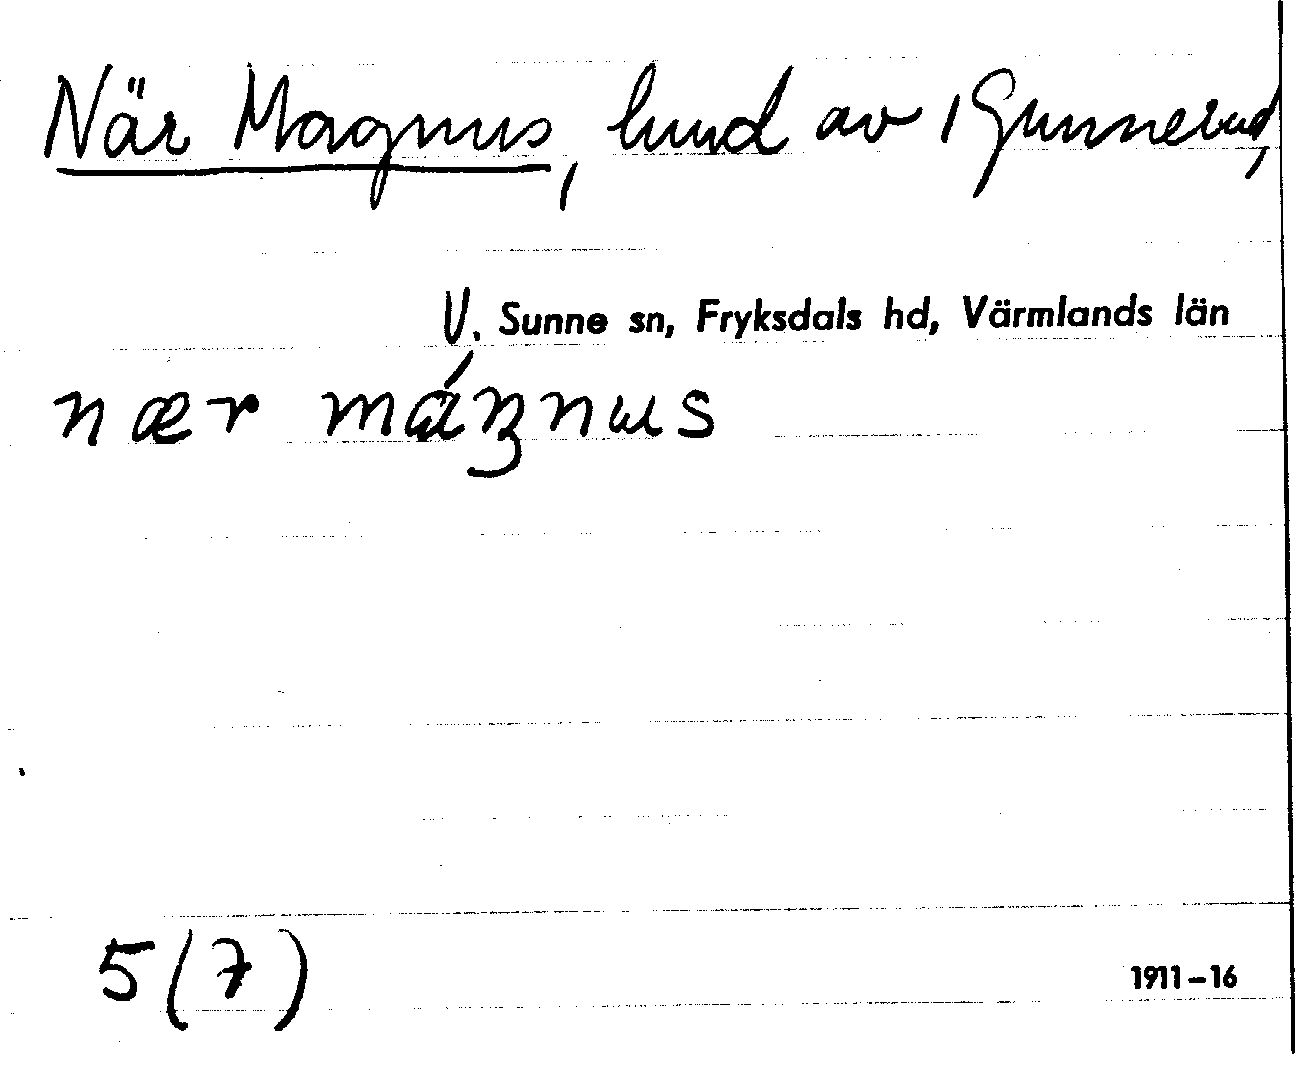 När Magnus, hmd av 1 Gunnerud,
V. Sunne sn, Fryksdals hd, Värmlands län
nær máŋnus
5(7)
1911-16